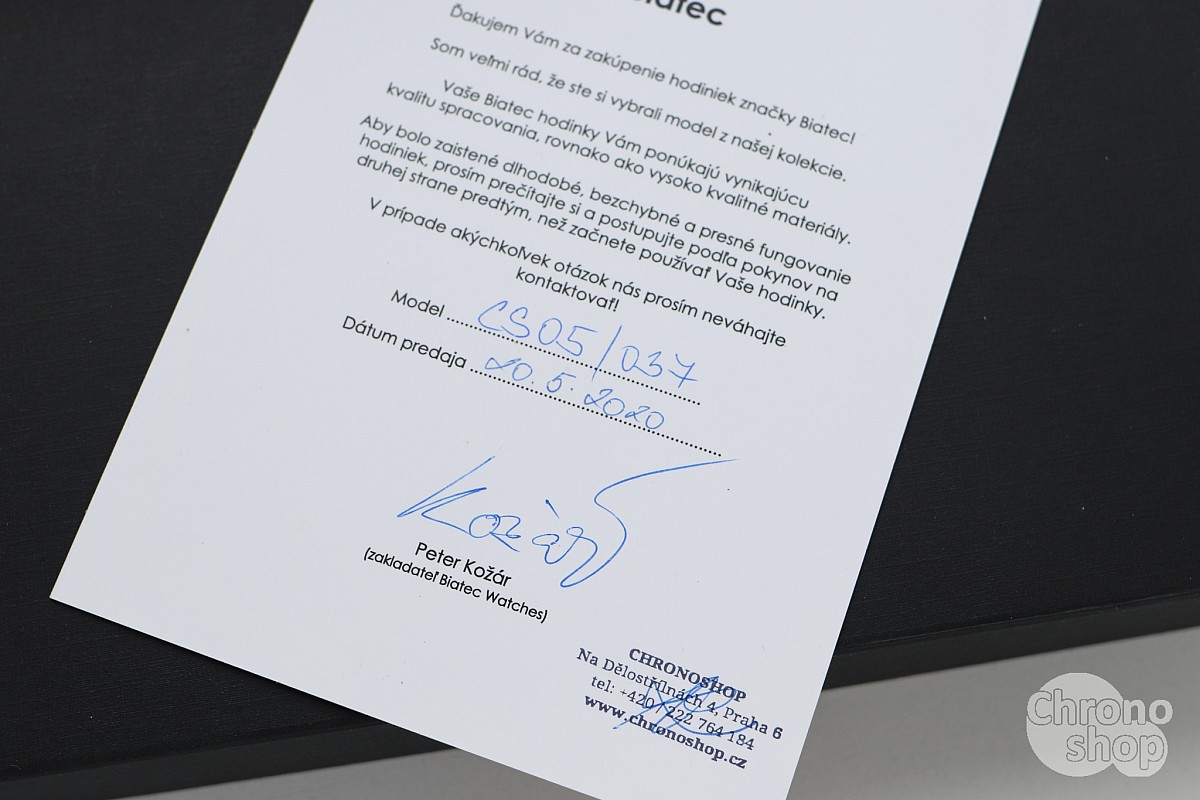 Biatec
Ďakujem Vám za zakúpenie hodiniek značky Biatec!
Som veľmi rád, že ste si vybrali model z našej kolekcie.
Vaše Biatec hodinky Vám ponúkajú vynikajúcu
kvalitu spracovania, rovnako ako vysoko kvalitné materiály.
Aby bolo zaistené dlhodobé, bezchybné a presné fungovanie
hodiniek, prosím prečítajte si a postupujte podľa pokynov na
druhej strane predtým, než začnete používať Vaše hodinky.
V prípade akýchkoľvek otázok nás prosím neváhajte
kontaktovať!
Model CS05/037
Dátum predaja 20.5.2020
Kozár
Peter Kožár
(zakladateľ Biatec Watches)
CHRONOSHOP
Na Dělostřílnách 4, Praha 6
tel: +420 / 222 764 184
www.chronoshop.cz
Chrono
shop